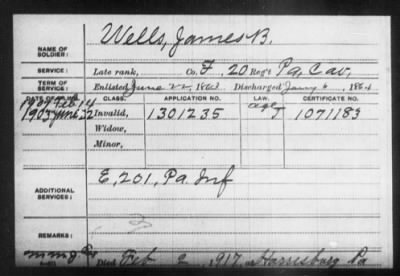 NAME OF SOLDIER: Wells, James B.
SERVICE: Late rank, Co. F, 20 Reg't Pa. Cav.
TERM OF SERVICE: Enlisted June 22, 1863 Discharged Jany 6, 1864
DATE OF FILING. CLASS. APPLICATION NO. LAW. CERTIFICATE NO.
1907 Feb 14
1903 June 22 Invalid, 1301235 age J 1071183
Widow,
Minor,
ADDITIONAL SERVICES: E, 201, Pa Inf
REMARKS:
Died Feb 2, 1917, at Harrisburg Pa